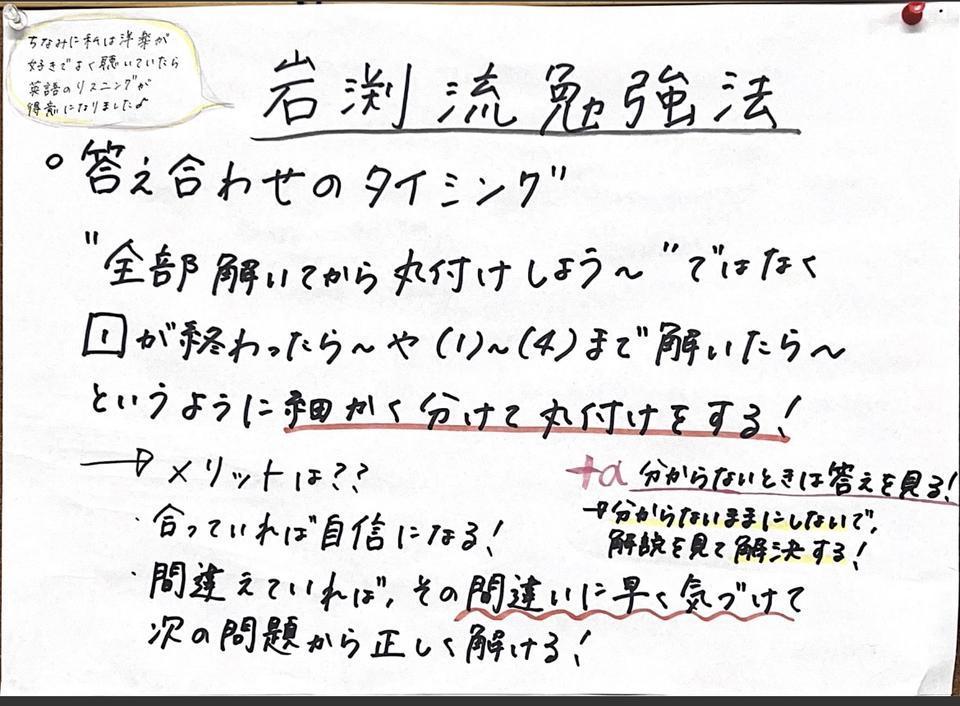 ちなみに私は洋楽が
好きでよく聴いていたら
英語のリスニングが
得意になりました♪
岩渕流勉強法
○答え合わせのタイミング
"全部解いてから丸付けしよう〜"ではなく
1が終わったら〜や(1)〜(4)まで解いたら〜
というように細かく分けて丸付けをする!
→メリットは??
・合っていれば自信になる!
・間違えていれば、その間違いに早く気づけて
次の問題から正しく解ける!
+α 分からないときは答えを見る!
→分からないままにしないで、
解説を見て解決する!